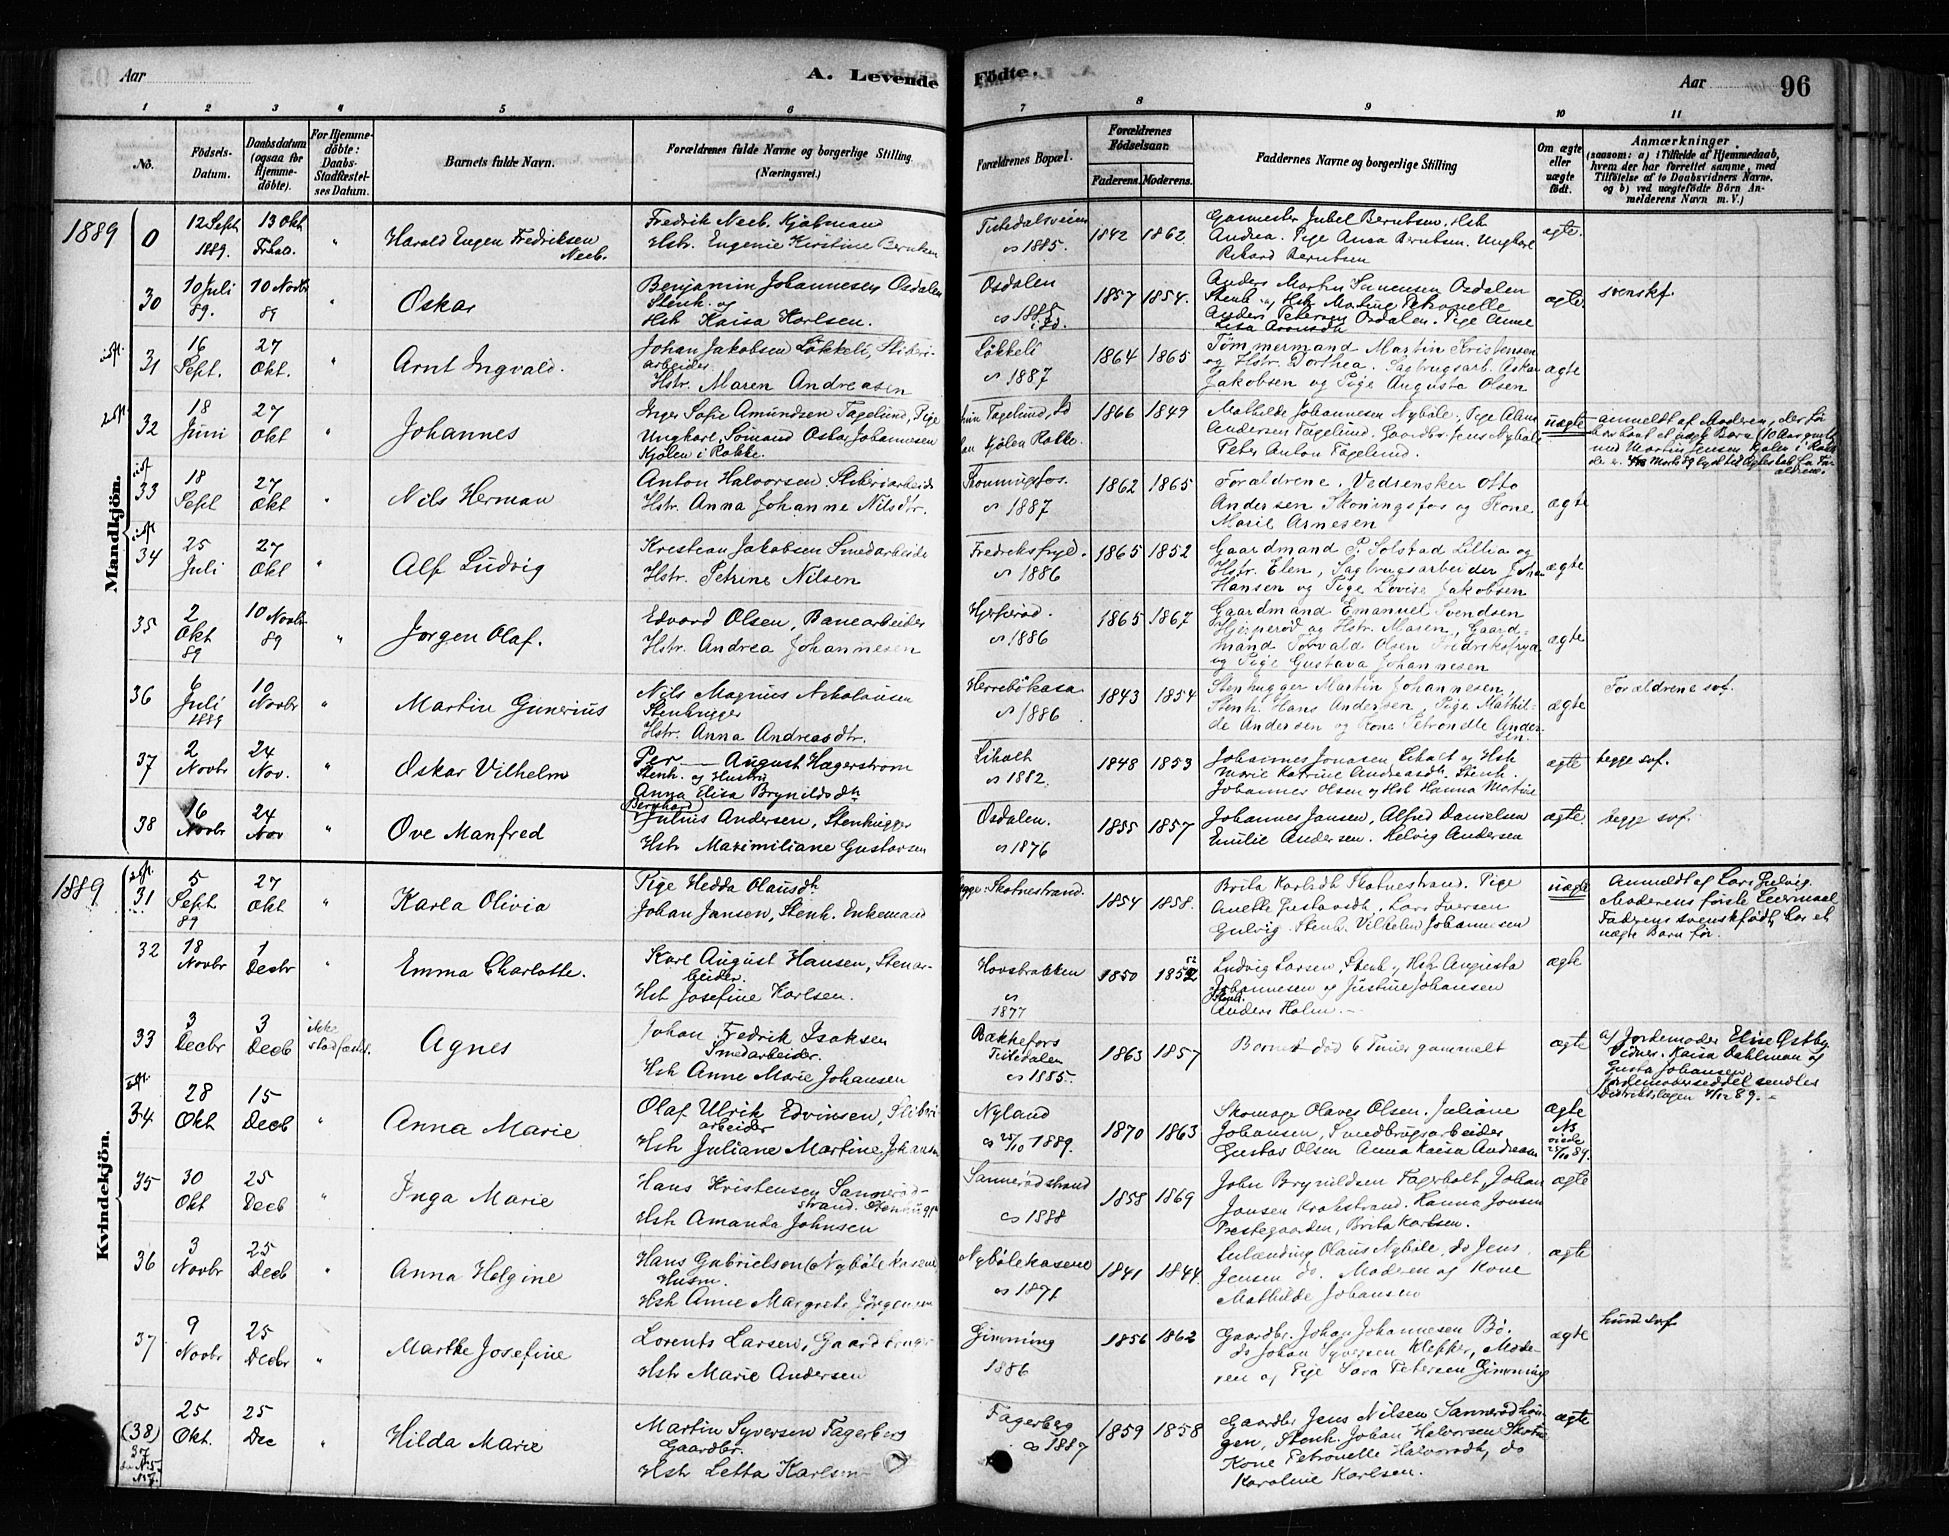 Aar
A. Levende
Fødte.
Aar
96
1 2 3 4 5 6 7 8 9 10 11
No.
Fødsels-Datum.
Daabsdatum (ogsaa for Hjemmedøbte).
For Hjemmedøbte: Daabs-Stadfæstelses Datum.
Barnets fulde Navn.
Forældrenes fulde Navne og borgerlige Stilling (Næringsvei.)
Forældrenes Bopæl.
Forældrenes Fødselsaar.
Faderens. Moderens.
Faddernes Navne og borgerlige Stilling
Om ægte eller uægte født.
Anmærkninger
(saasom: a) i Tilfælde af Hjemmedaab,
hvem der har forrettet samme, med
Tilføielse af to Daabsvidners Navne,
og b) ved uægtefødte Børn An-
melderens Navn m. V.)
Mandkjön.
1889
0
12 Sept 1889.
13 Okt
"
Harald Eugen Fredriksen Neeb.
Fredrik Neeb. Kjøbmand
Hstr. Eugenie Kirstine Berntsen
Tistedalsveien
1885.
1842 1862
Gasmester Jubel Berntsen, Hst
Andrea. Pige Anna Berntsen. Ungkarl
Rikard Berntsen
ægte.
30
10 Juli 89.
10 Novbr 89
"
Oskar
Benjamin Johannesen Osdalen
Stenh. og
Hst Kaisa Karlsen.
Osdalen
1885
1857 1854.
Anders Martin Osdalen
Stenh og Hst Martine Petronelle
Anders Petersen Osdalen. Pige Anne
ægte
svenskf.
31
16 Sept.
27 Okt.
"
Arnt Ingvald.
Johan Jakobsen Løkkeli, Sliberi-
arbeider
Hstr. Maren Andreasen
Løkkeli
1887
1864 1865
Tømmermand Martin Kristensen
og Hstr. Dorthea. Sagbrugsarb. Oskar
Jakobsen og Pige Augusta Olsen
ægte
32
18 Juni
27 Okt
"
Johannes
Inger Sofie Amundsen Fagelund, Pige
Ungkarl, Sømand Oskar Johannesen
Kjølen i Rakke.
hun Fagelund, Id
han Kjølen Rakke.
1866 1849
Mathilde Johannesen Nybøle. Pige
Andersen Fagelund. Gaardbr. Jens Nybøle
Peter Anton Fagelund.
uægte
anmeldt af Moderen, der før
har havt et uægte Barn (10 Aar gml.)
med Martin Jensen Kjølen i
33
18 Sept
27 Okt
"
Nils Herman
Anton Halvorsen Sliberiarbeid
Hstr. Anna Johanne Nilsdtr.
Skonningsfos.
1887
1862 1865
Forældrene. Vedrensker Otto
Andersen Skoningsfos og Kone
Marie Arnesen
ægte
34
25 Juli
27 Okt
"
Alf Ludvig
Kristian Jakobsen Smedarbeide
Hstr. Petrine Nilsen
Fredriksfryd.
1886
1865 1852
Gaardmand P. Solstad Lillia og
Hstr. Elen, Sagbrugsarbeider Johan
Hansen og Pige Lovise Jakobsen
ægte
35
2 Okt 89
10 Novbr 89
"
Jørgen Olaf.
Edvard Olsen, Banearbeider
Hstr. Andrea Johannesen
Hjesperød.
1886
1865 1867
Gaardmand Emanuel Svendsen
Hjesperød og Hstr. Maren, Gaard-
mand Torvald Olsen Fredriksfryd
og Pige Gustava Johannesen
ægte
36
6 Juli 1889
10 Novbr
"
Martin Gunerius
Nils Magnus Nikolaisen
Stenhugger
Hstr. Anna Andreasdtr.
Herrebøkasa
1886
1843 1854
Stenhugger Martin Johannesen,
Stenh. Hans Andersen, Pige Mathil-
de Andersen og Kone Petronelle Ander-
sen
ægte
Forældrene svf.
37
2 Novbr
24 Nov.
"
Oskar Vilhelm
Per — August Hægerstrøm
Stenh. og Hustru
Anna Elisa Brynildsdtr
Liholt
1882.
1848 1853
Johannes Jonasen, Liholt og Hst
Marie Katrine Andreasdt. Stenh.
Johannes Olsen og Hst Hanna Martine
ægte
begge svf.
38
16 Novbr
24 Nov
"
Ove Manfred
(Bernhard)
Julius Andersen, Stenhugger
Hstr Maximiliane Gustavsen
Osdalen.
1876
1855 1857
Johannes Jansen, Alfred Danielsen
Emilie Andersen. Helvig Andersen
ægte.
begge svf.
Kvindekjön.
1889
31
5 Sept 89
27 Okt
"
Karla Olivia
Pige Hedda Olausdtr
Johan Jansen, Stenh. Enkemand
begge Skotnestrand.
1854 1858.
Brita Karlsdt Skotnestrand. Pige
Anette Gustavsdt, Lars Iversen
Gulvig. Stenh. Vilhelm Johannesen
uægte
Anmeldt af Lars Gulvig.
Moderens første Leiermaal
Faderen svenskfødt, har et
uægte Barn før.
32
18 Novbr
1 Decbr
"
Emma Charlotte.
Karl August Hansen, Stenar-
beider.
Hst Josefine Karlsen.
Hovsbakken
1877
1850 1852 52
Ludvig Larsen, Stenh. og Hst Augusta
Johannesen og Justine Johansen
Stenh.
Anders Holm.
ægte
33
3 Decbr
3 Decb
ikke stadfæstet.
Agnes
Johan Fredrik Isaksen
Smedarbeider.
Hst Anne Marie Johansen
Bækkefors
Tistedalen
1885.
1863 1857
Barnet død 6 Timer gammelt
ægte
af Jordemoder Elise Østby
Vidner. Kaisa Dahlman og
Gusta Johansen.
Jordemoderseddel sendtes
Distriktslægen 4/12 89.
34
28 Okt
15 Decb
"
Anna Marie
Olaf Ulrik Edvinsen, Sliberi-
arbeider
Hst Juliane Martine Johansen
Nyland
25/10 1889.
1870 1863
Skomager Olaves Olsen. Juliane
Johansen, Smedbrugsarbeider
Gustav Olsen Anna Kaisa Andreasen
ægte
NB
viede
25/10 89.
35
30 Okt
25 Decb
"
Inga Marie
Hans Kristensen Sannerød-
strand. Stenhugger
Hst Amanda Johnsen
Sannerødstrand
1888
1858 1869
John Brynildsen Fagerholt, Johan
Jansen Krakstrand. Hanna Jonsen
Prestegaarden, Brita Karlsen.
ægte
36
3 Novbr
25 Decb
"
Anna Helgine
Hans Gabrielsen (Nybølekasene
Husm.
Hst Anne Margrete Jørgensen
Nybølekasene
1871
1841 1844.
Olaus Nybøle, do Jens
Jensen do. Moderen og Kone
Mathilde Johansen
ægte
37
9 Novbr
25 Decbr
"
Marthe Josefine
Lorents Larsen, Gaardbruger
Hstr Marie Andersen
Gimming
1886
1856 1862
Gaardbr. Johan Johannesen Bø.
do Johan Syversen Klepper, Mode-
ren og Pige Sara Petersen Gimming
ægte
hun svf
(38)
37
25 Okt.
25 Dec
"
Hilda Marie
Martin Syversen Fagerberg
Gaardbr.
Hst Letta Karlsen
Fagerberg
1887
1859 1858
Gaardbr Jens Nilsen Sannerødhau-
gen, Stenh. Johan Halvorsen
Kone Petronelle Halvorsdt, do
Karoline Karlsen.
ægte